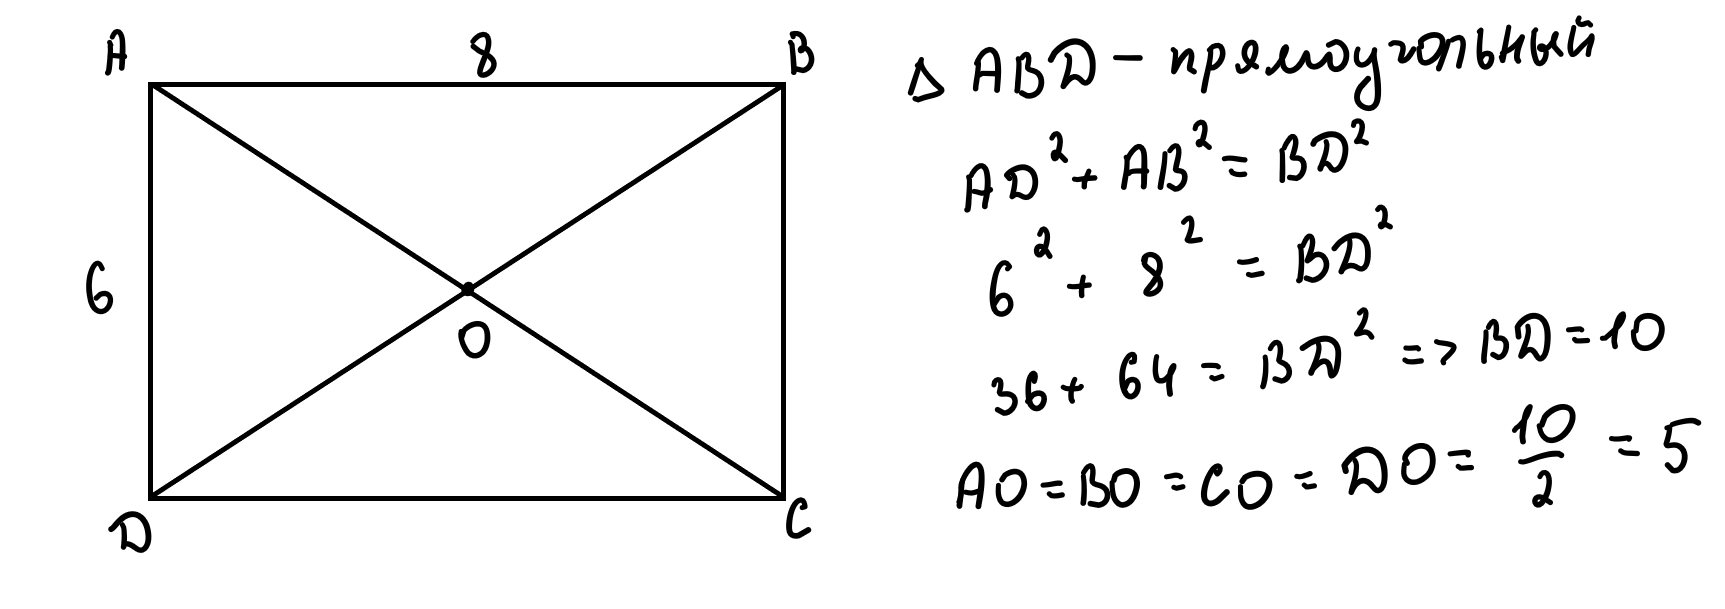 A 8 B
6
O
D C
Δ ABD - прямоугольный
AD² + AB² = BD²
6² + 8² = BD²
36 + 64 = BD² => BD = 10
AO = BO = CO = DO = 10/2 = 5